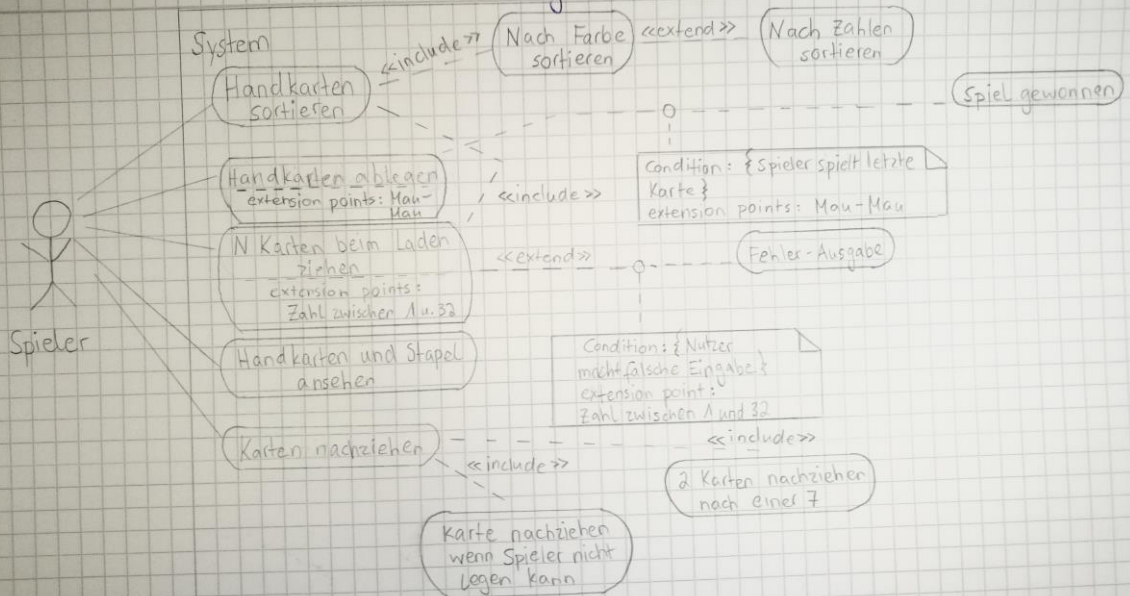 System
Handkarten
sortieren
<<include>>
Nach Farbe
sortieren
<<extend>>
Nach Zahlen
sortieren
Spiel gewonnen
Handkarten ablegen
extension points: Mau-
Mau
<<include>>
Condition: {Spieler spielt letzte
Karte}
extension points: Mau-Mau
N Karten beim Laden
ziehen
extension points:
Zahl zwischen 1 u. 32
<<extend>>
Fehler-Ausgabe
Spieler
Handkarten und Stapel
ansehen
Condition: {Nutzer
macht falsche Eingabe}
extension point:
Zahl zwischen 1 und 32
Karten nachziehen
<<include>>
<<include>>
2 Karten nachziehen
nach einer 7
Karte nachziehen
wenn Spieler nicht
legen kann